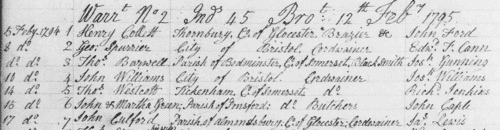 Warrt. No 2 Ind 45 Bro.t 12th Feby 1795
5 Feby. 1794 1 Henry Collett Thornbury, C. of Glocester Brazier & John Ford
8 do. 2 Geo. Spurrier City of Bristol Cordwainer Edwd. T. Cann
do. do. 3 Thos. Barwell Parish of Bedminster, C. of Somerset, Black Smith Jos. Gunning
10 do. 4 John Williams City of Bristol. Cordwainer Jos. Williams
14 do. 5 Thos. Westcott Tickenham, C. of Somerset do. Richd. Jenkins
16 do. 6 John & Martha Green; Parish of do. Butchers John Caple
17 do. 7 John Parish of Almondsbury, C. of Glocester; Cordwainer Jas. Lewis